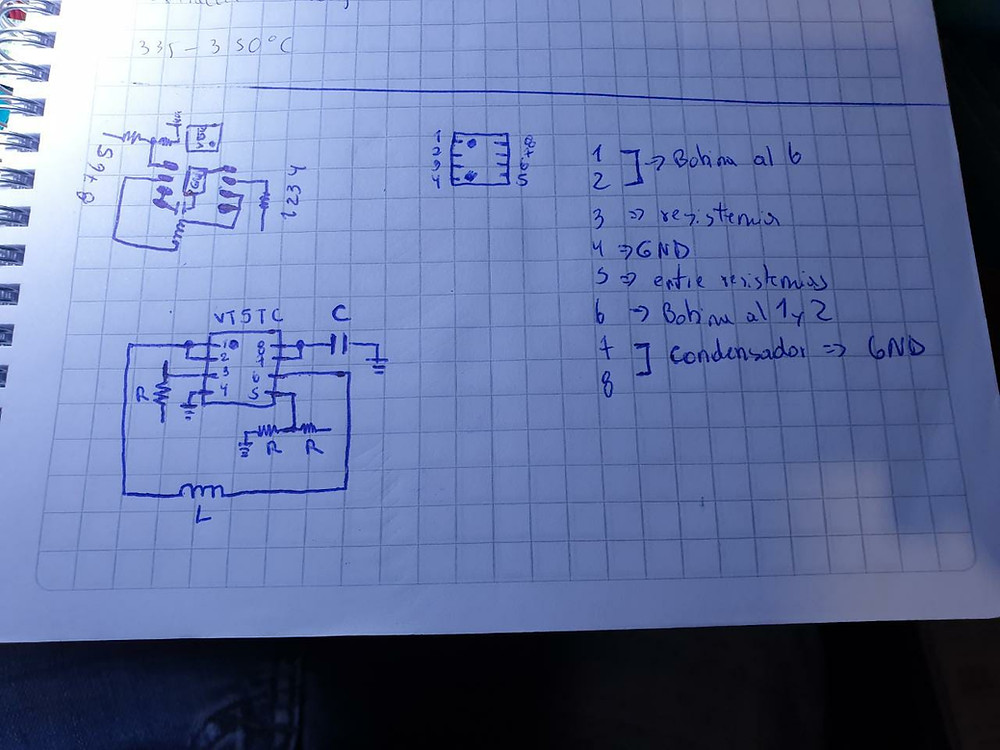 335 - 350°C
8 7 6 5
1 2 3 4
1 8
2 7
3 6
4 5
1
2 ] => Bobina al 6
3 => resistencia
4 => GND
5 => entre resistencias
6 => Bobina al 1 y 2
7
8 ] Condensador => GND
VT5TC C
1 8
2 7
3 6
4 5
R
R R
L